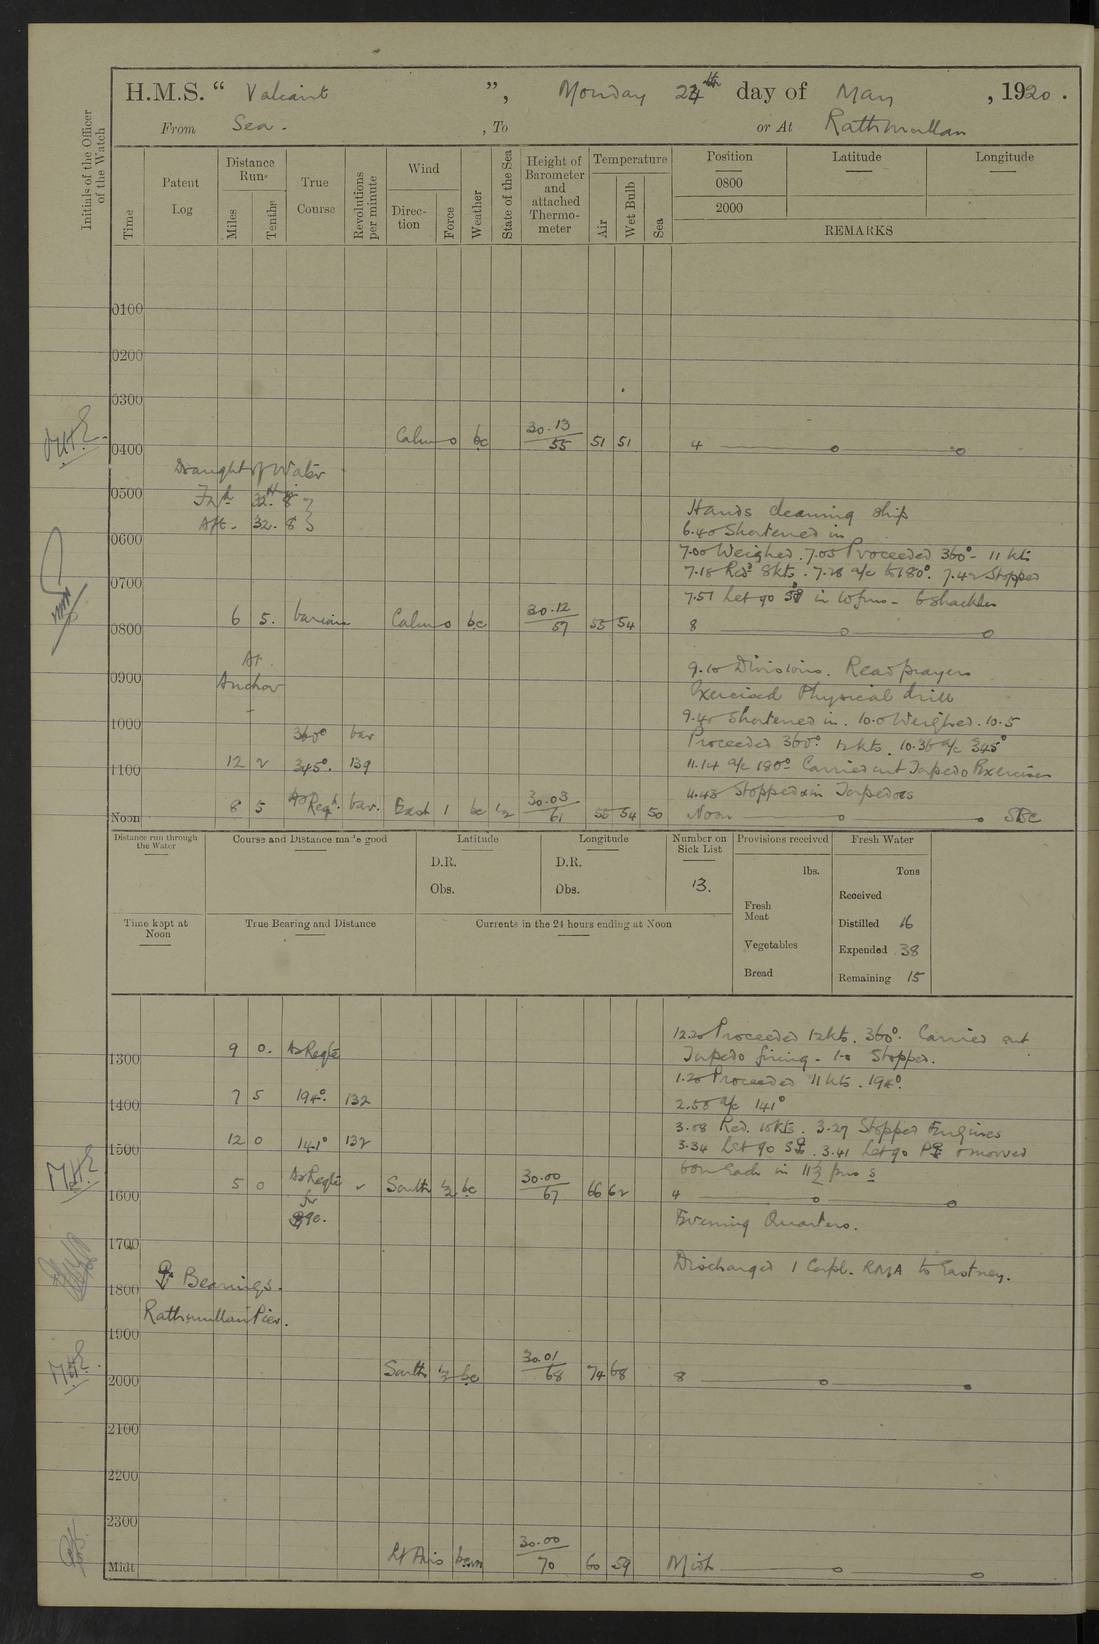 H.M.S. “ Valiant ”, Monday 24th day of May , 1920 .
From Sea . , To or At Rathmullan
Initials of the Officer of the Watch
Time
Patent Log
Distance Run
Miles
Tenths
True Course
Revolutions per minute
Wind
Direc-tion
Force
Weather
State of the Sea
Height of Barometer and attached Thermo-meter
Temperature
Air
Wet Bulb
Sea
Position Latitude Longitude
0800
2000
REMARKS
0100
0200
0300
0400 Calm o bc 30.13 55 51 51 4
Draught of Water
0500 Fwd 32. 8
Aft. 32. 8 Hands cleaning ship
0600 6.40 Shortened in
7.00 Weighed. 7.05 Proceeded 360° 11 kts
0700 7.18 Red. 8 kts. 7.28 a/c to 180°. 7.42 Stopped
7.51 Let go in 10 fms - 6 shackles
0800 6 5. Calm o bc 30.12 57 55 54 8
At 9.10 Divisions. Read prayers
0900 Anchor Exercised Physical drill
9.40 Shortened in. 10.0 Weighed. 10.5
1000 360° var Proceeded 360° 12 kts. 10.36 a/c 345°
1100 12 2 345°. 139 11.14 a/c 180° Carried out Torpedo Exercises
11.43 Stopped Torpedoes
Noon 8 5 As Reqd. var. East 1 bc ½ 30.03 61 55 54 50 Noon
Distance run through the Water
Course and Distance made good
Latitude
D.R.
Obs.
Longitude
D.R.
Obs.
Number on Sick List
13.
Provisions received
lbs.
Fresh Meat
Vegetables
Bread
Fresh Water
Tons
Received
Distilled 16
Expended 38
Remaining 15
Time kept at Noon
True Bearing and Distance
Currents in the 24 hours ending at Noon
12.20 Proceeded 12 kts. 360°. Carried out
1300 9 0. As Reqte Torpedo firing - 1.0 Stopped.
1.20 Proceeded 11 kts. 194°.
1400 7 5 194°. 132 2.50 a/c 141°
3.08 Red. 10 kts. 3.27 Stopped Engines
1500 12 0 141° 132 3.34 Let go 3.41 Let go & moored
As Reqte in 11½ fms
1600 5 0 for South ½ bc 30.00 67 66 62 4
Evening Quarters.
1700
Discharged 1 Corpl. RMA to Eastney.
1800 Bearings.
Rathmullan Pier.
1900
2000 South ½ bc 30.01 68 74 68 8
2100
2200
2300
Midt Lt Airs 30.00 70 60 59 Midt